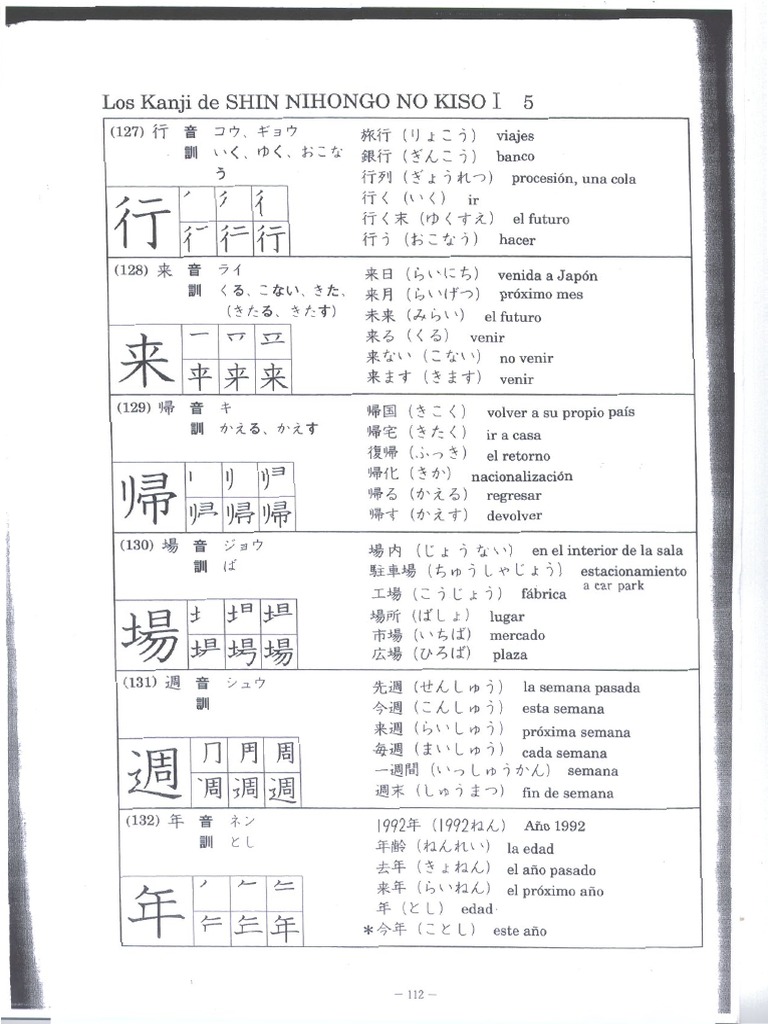 Los Kanji de SHIN NIHONGO NO KISO I 5
(127) 行 音 コウ、ギョウ
訓 いく、ゆく、おこな
う
行
行
旅行 (りょこう) viajes
銀行 (ぎんこう) banco
行列 (ぎょうれつ) procesión, una cola
行く (いく) ir
行く末 (ゆくすえ) el futuro
行う (おこなう) hacer
(128) 来 音 ライ
訓 くる、こない、きた、
(きたる、きたす)
来
来 来
来日 (らいにち) venida a Japón
来月 (らいげつ) próximo mes
未来 (みらい) el futuro
来る (くる) venir
来ない (こない) no venir
来ます (きます) venir
(129) 帰 音 キ
訓 かえる、かえす
帰
帰
帰国 (きこく) volver a su propio país
帰宅 (きたく) ir a casa
復帰 (ふっき) el retorno
帰化 (きか) nacionalización
帰る (かえる) regresar
帰す (かえす) devolver
(130) 場 音 ジョウ
訓 ば
場
場
場内 (じょうない) en el interior de la sala
駐車場 (ちゅうしゃじょう) estacionamiento
a car park
工場 (こうじょう) fábrica
場所 (ばしょ) lugar
市場 (いちば) mercado
広場 (ひろば) plaza
(131) 週 音 シュウ
訓
週
冂 周
週
先週 (せんしゅう) la semana pasada
今週 (こんしゅう) esta semana
来週 (らいしゅう) próxima semana
毎週 (まいしゅう) cada semana
一週間 (いっしゅうかん) semana
週末 (しゅうまつ) fin de semana
(132) 年 音 ネン
訓 とし
年
年
1992年 (1992ねん) Año 1992
年齢 (ねんれい) la edad
去年 (きょねん) el año pasado
来年 (らいねん) el próximo año
年 (とし) edad
*今年 (ことし) este año
— 112 —